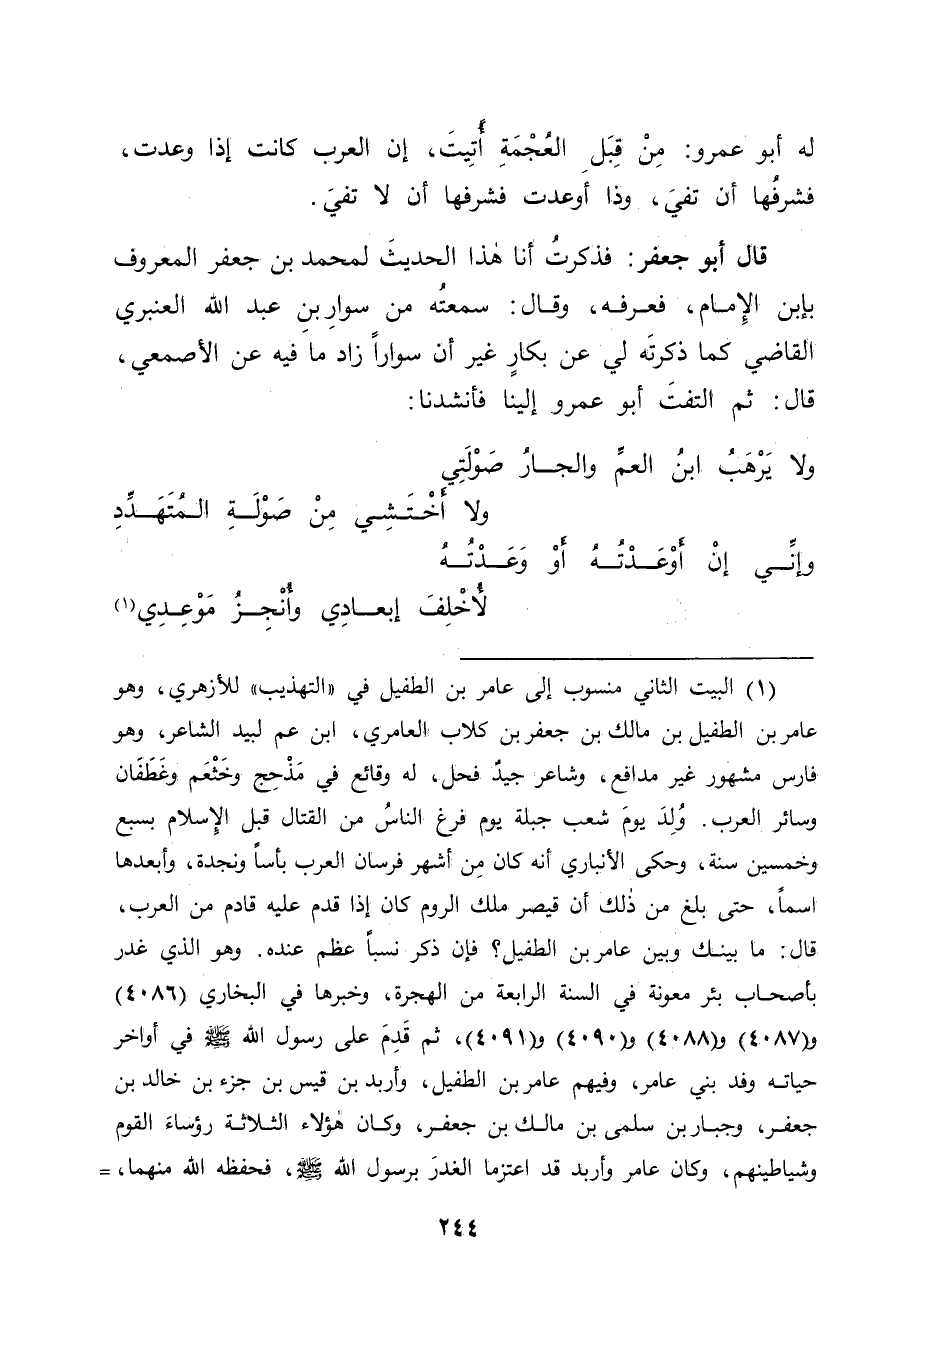 له أبو عمرو: مِنْ قِبَلِ العُجْمَةِ أُتِيتَ، إن العرب كانت إذا وعدت،
فشرفُها أن تفيَ، وذا أوعدت فشرفها أن لا تفيَ.
قال أبو جعفر: فذكرتُ أنا هٰذا الحديثَ لمحمد بن جعفر المعروف
بإبن الإِمام، فعرفه، وقال: سمعتُه من سوارِ بنِ عبد الله العنبري
القاضي كما ذكرتَه لي عن بكارٍ غير أن سواراً زاد ما فيه عن الأصمعي،
قال: ثم التفتَ أبو عمرو إلينا فأنشدنا:
ولا يَرْهَبُ ابنُ العمِّ والجارُ صَوْلَتِي
ولا أَخْتَشِي مِنْ صَوْلَةِ المُتَهَدِّدِ
وإنِّي إنْ أَوْعَدْتُهُ أَوْ وَعَدْتُهُ
لأُخْلِفَ إيعادِي وأُنْجِزُ مَوْعِدِي(١)
(١) البيت الثاني منسوب إلى عامر بن الطفيل في «التهذيب» للأزهري، وهو
عامر بن الطفيل بن مالك بن جعفر بن كلاب العامري، ابن عم لبيد الشاعر، وهو
فارس مشهور غير مدافع، وشاعر جيدٌ فحل، له وقائع في مَذْحِج وخَثْعَم وغَطَفَان
وسائر العرب. وُلِدَ يومَ شعب جبلة يوم فرغ الناسُ من القتال قبل الإِسلام بسبع
وخمسين سنة، وحكى الأنباري أنه كان مِن أشهر فرسان العرب بأساً ونجدة، وأبعدها
اسماً، حتى بلغ من ذٰلك أن قيصر ملك الروم كان إذا قدم عليه قادم من العرب،
قال: ما بينك وبين عامر بن الطفيل؟ فإن ذكر نسباً عظم عنده. وهو الذي غدر
بأصحاب بئر معونة في السنة الرابعة من الهجرة، وخبرها في البخاري (٤٠٨٦)
و(٤٠٨٧) و(٤٠٨٨) و(٤٠٩٠) و(٤٠٩١)، ثم قَدِمَ على رسول الله ﷺ في أواخر
حياته وفد بني عامر، وفيهم عامر بن الطفيل، وأربد بن قيس بن جزء بن خالد بن
جعفر، وجبار بن سلمى بن مالك بن جعفر، وكان هٰؤلاء الثلاثة رؤساءَ القوم
وشياطينهم، وكان عامر وأربد قد اعتزما الغدرَ برسول الله ﷺ، فحفظه الله منهما، =
٢٤٤